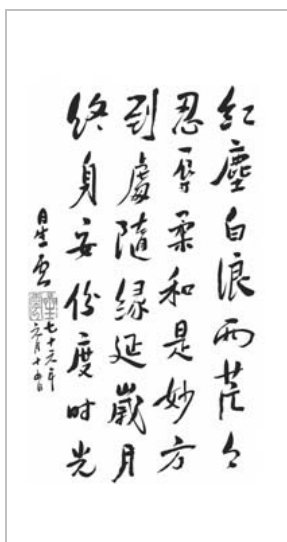 紅塵白浪兩茫々
忍辱柔和是妙方
到處隨緣延歲月
終身安份度时光
星雲
七十年
月十日